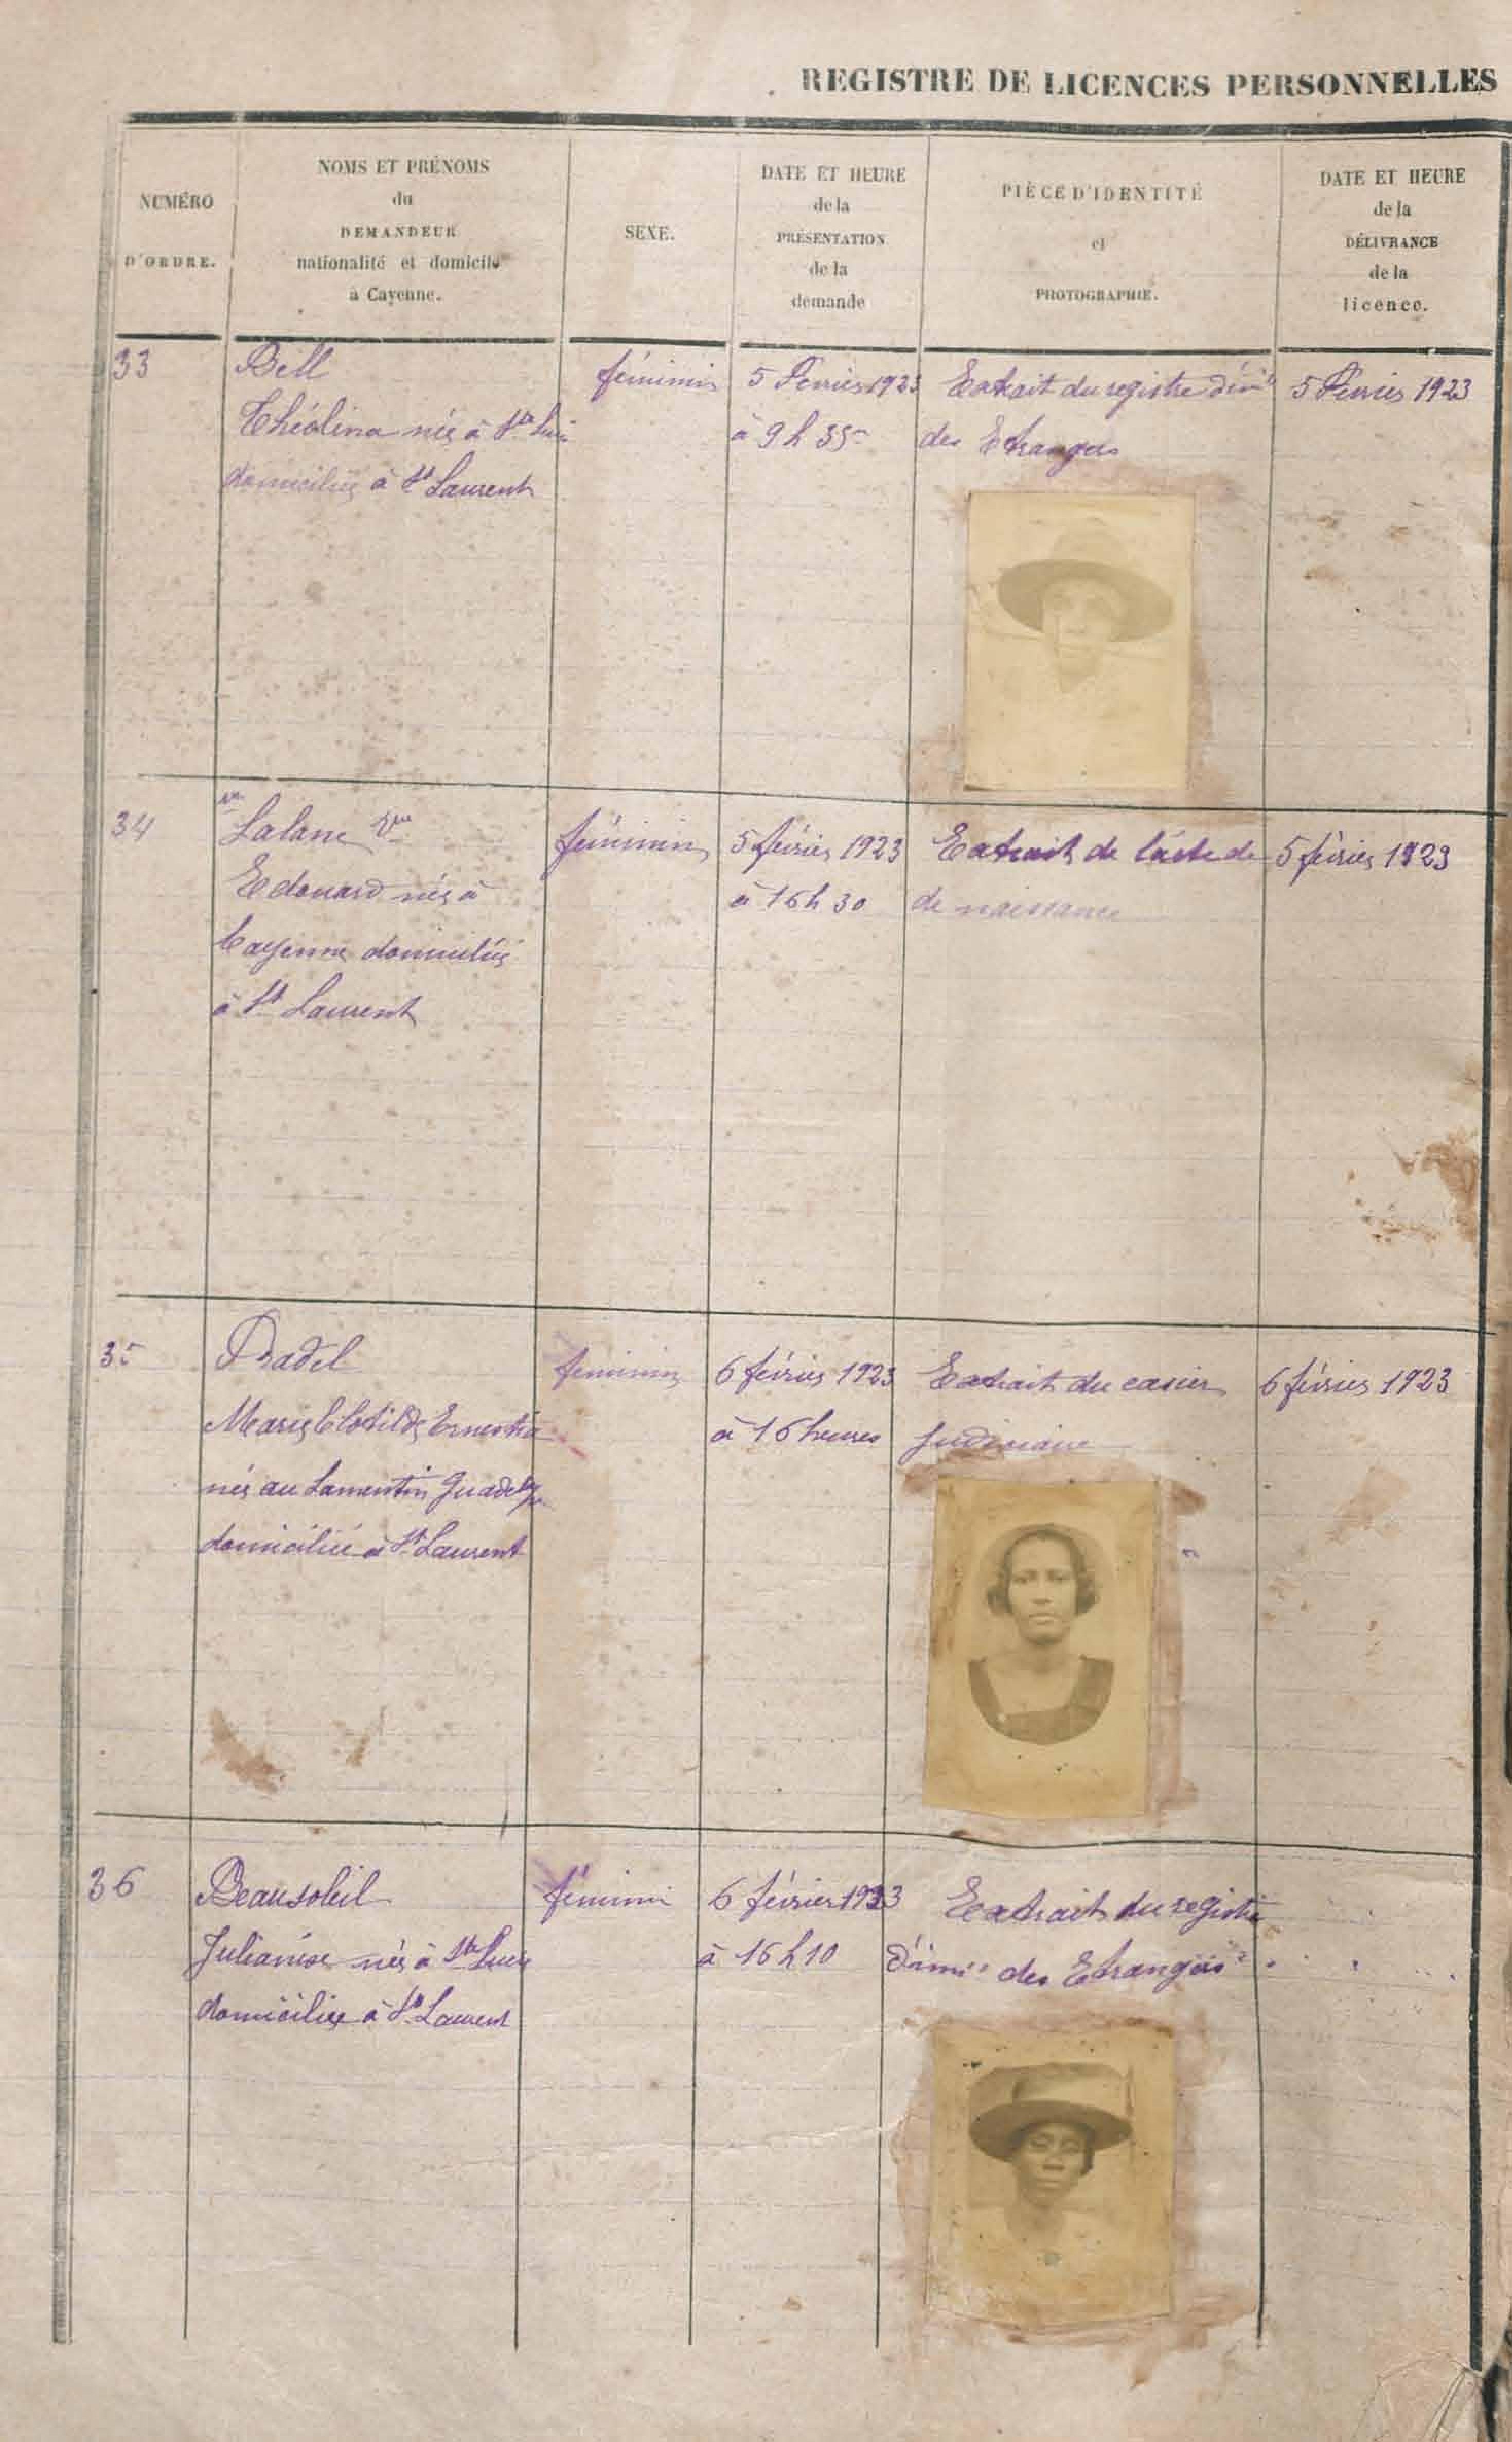 REGISTRE DE LICENCES PERSONNELLES
NUMÉRO
D'ORDRE.
NOMS ET PRÉNOMS
du
DEMANDEUR
nationalité et domicile
à Cayenne.
SEXE.
DATE ET HEURE
de la
PRÉSENTATION
de la
demande
PIÈCE D'IDENTITÉ
et
PHOTOGRAPHIE.
DATE ET HEURE
de la
DÉLIVRANCE
de la
licence.
33
Bell
Théolina née à Ste Lucie
domiciliée à St Laurent
féminin
5 Février 1923
à 9 h 35
Extrait du registre d'imm
des Etrangers
5 Février 1923
34
Lalane Vve
Edouard née à
Cayenne domiciliée
à St Laurent
féminin
5 février 1923
à 16 h 30
Extrait de l'acte de
de naissance
5 février 1923
35
Pradel
Marie Clotilde Ernestia
née au Lamentin Guadelpe
domiciliée à St Laurent
feminin
6 février 1923
à 16 heures
Extrait du casier
Judiciaire
6 février 1923
36
Beausoleil
Julianise née à Ste Lucie
domiciliée à St Laurent
féminin
6 février 1923
à 16 h 10
Extrait du registre
d'imm des Etrangers